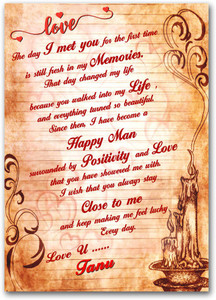 love
The day I met you for the first time
is still fresh in my Memories.
That day changed my life
because you walked into my Life ,
and everything turned so beautiful.
Since then I have become a
Happy Man
surrounded by Positivity and Love
that you have showered me with
I wish that you always stay
Close to me
and keep making me feel lucky
Every day.
Love U ......
Tanu